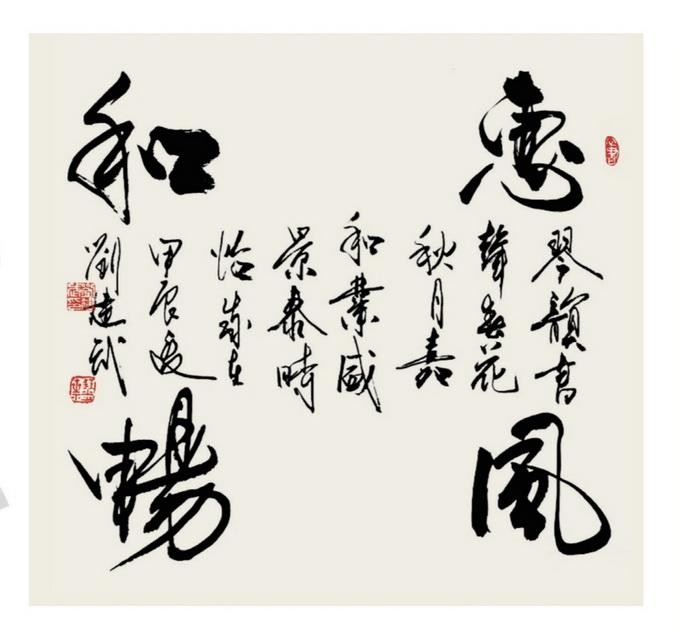 惠風
和暢
琴韻書
聲春花
秋月嘉
和業盛
景泰時
怡歲在
甲辰夏
劉建武